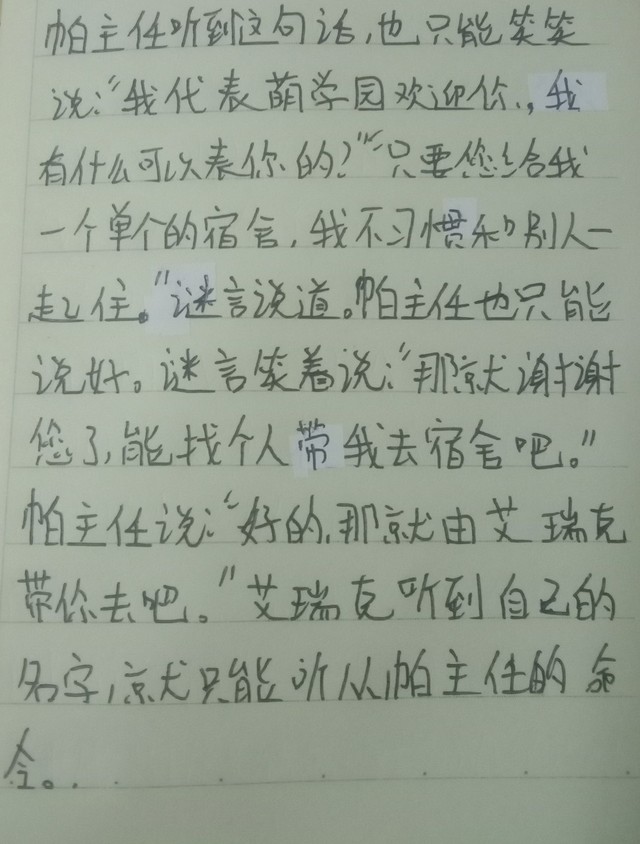 帕主任听到这句话,也只能笑笑
说:“我代表萌学园欢迎你.,我
有什么可以表你的?”“只要您给我
一个单个的宿舍,我不习惯和别人一
起住。”谜言说道。帕主任也只能
说好。谜言笑着说:“那就谢谢
您了,能找个人带我去宿舍吧。”
帕主任说:“好的,那就由艾瑞克
带你去吧。”艾瑞克听到自己的
名字,就只能听从帕主任的命
令。